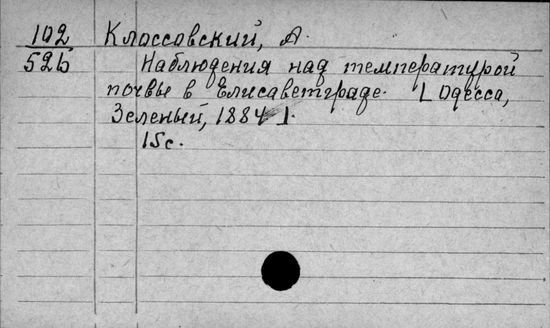 102 Клоссовский, А.
526 Наблюдения над температурой
почвы в Елисаветграде. [Одесса,
Зеленый, 1884].
15с.